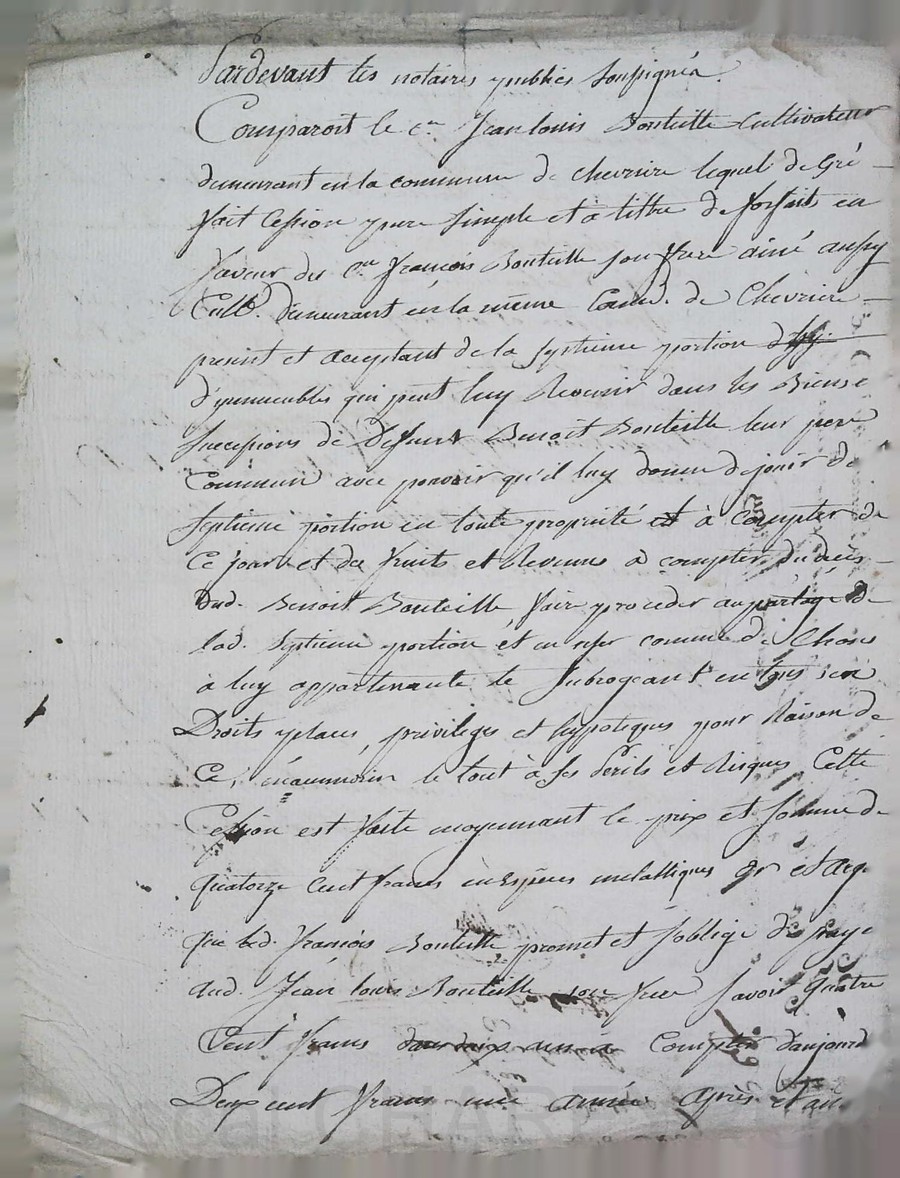 Pardevant les notaires publics soussignés
Comparoit le c.en Jean louis Bonteille Cultivateur
demeurant en la commune de chevrier lequel de Gré
fait Cession pure simple et à tittre de forfait en
faveur du C.en françois Bonteille son frere ainé aussy
Cult.r demeurant en la même Comm.e de Chevrier
present et acceptant de la septieme portion
d'immeubles qui peut luy Revenir dans les Biens &
successions de Defunt Benoit Bonteille leur pere
Commun avec pouvoir qu'il luy donne de jouir de
septieme portion en toute propriété et à compter de
Ce jour et des fruits et Revenus à compter du décès
Dud. Benoit Bonteille faire proceder au partage de
lad. septieme portion et en user comme de Chose
à luy appartenante le subrogeant en tous ses
Droits places, privileges et hypoteques pour Raison de
Ce, néanmoins le tout à ses Perils et Risques Cette
Cession est faite moyennant le prix et somme de
quatorze Cent francs en espèces metalliques or et arg.
que led. françois Bonteille promet et s'oblige de paye
aud. Jean louis Bonteille son frere savoir quatre
Cent francs dans deux ans à Compter d'aujourd
Deux cent francs une année après et au